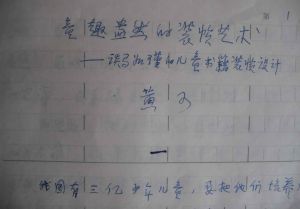 第 1
童趣盎然的装帧艺术
——谈马如瑾的儿童书籍装帧设计
黄 可
一
我国有三亿少年儿童，要把他们培养